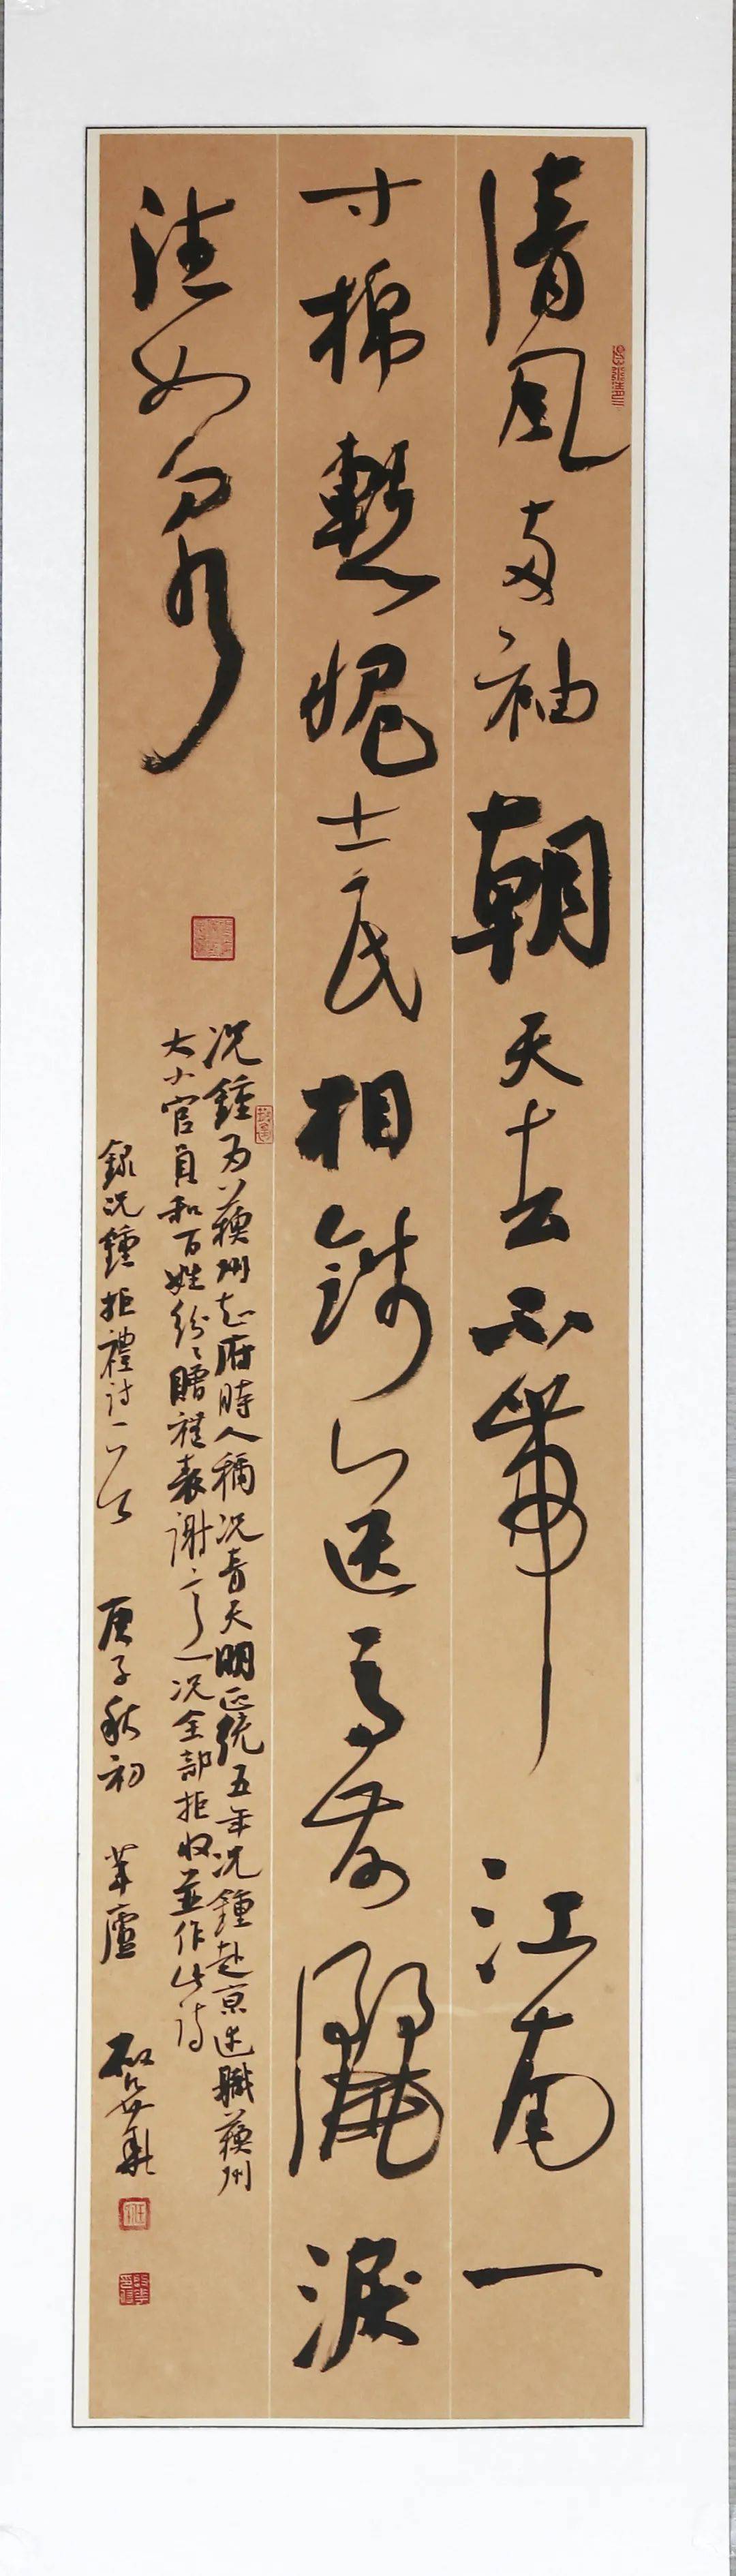 清風兩袖朝天去不帶江南一
寸棉慙愧士民相餞送馬前灑淚
注如泉
况鍾為蘇州知府時人稱况青天明正統五年况鍾赴京述職蘇州
大小官員和百姓紛紛贈禮表謝意况全部拒收並作此詩
錄况鍾拒禮詩一首 庚子秋初 葦廬